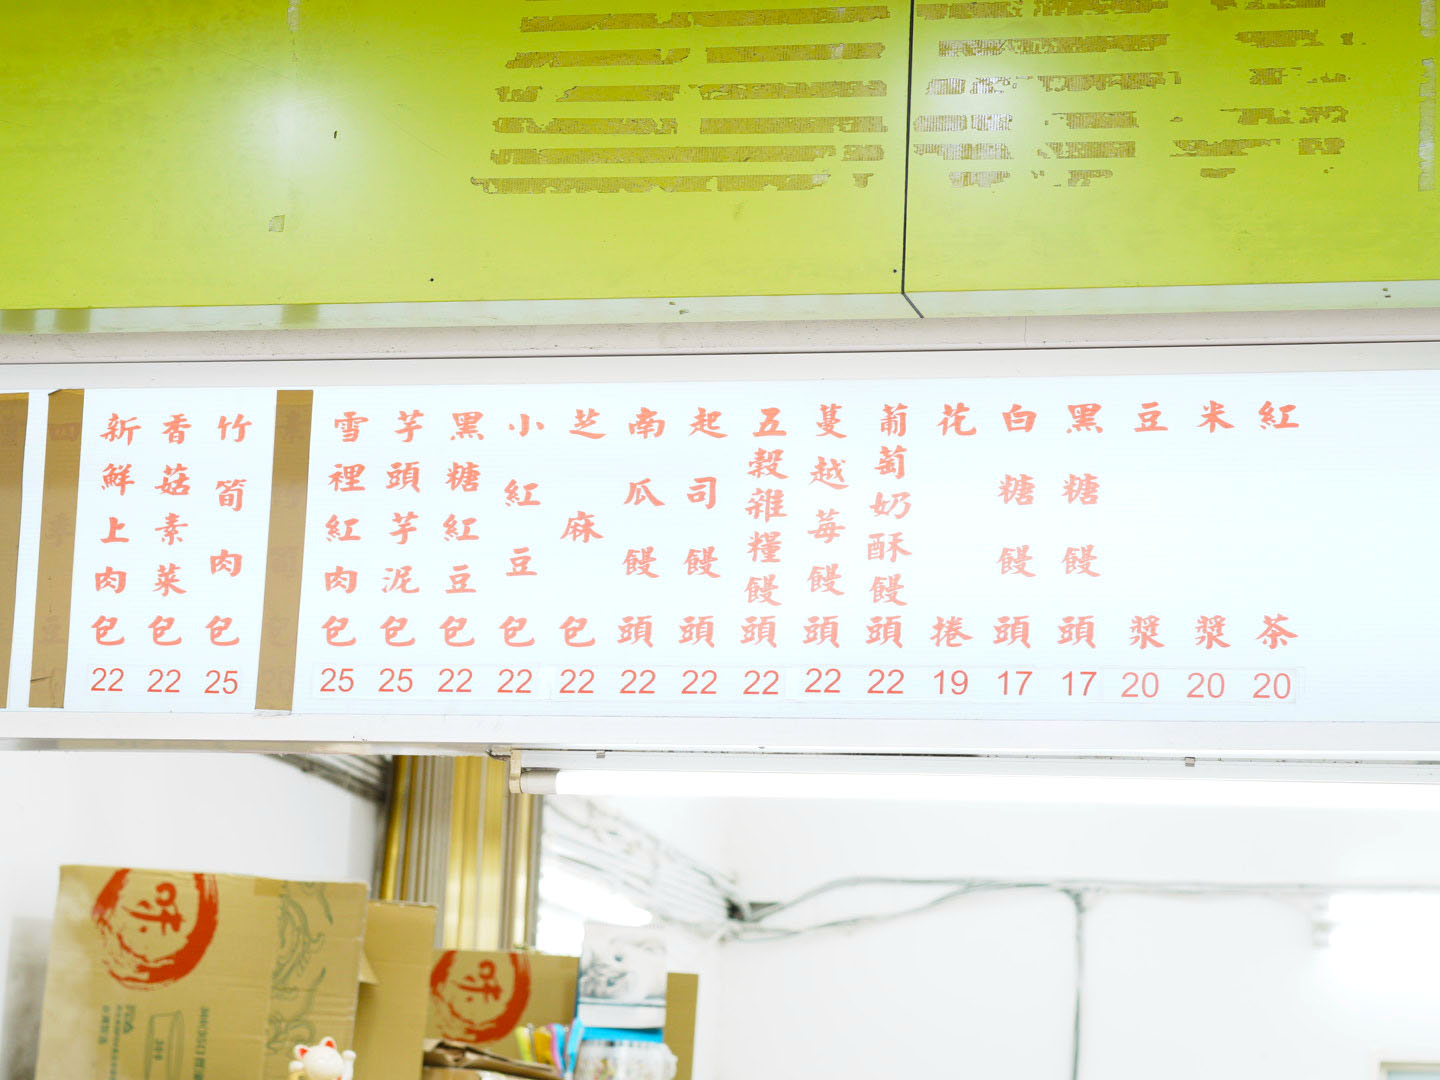 新鮮上肉包 22
香菇素菜包 22
竹筍肉包 25
雪裡紅肉包 25
芋頭芋泥包 25
黑糖紅豆包 22
小紅豆包 22
芝麻包 22
南瓜饅頭 22
起司饅頭 22
五穀雜糧饅頭 22
蔓越莓饅頭 22
葡萄奶酥饅頭 22
花捲 19
白糖饅頭 17
黑糖饅頭 17
豆漿 20
米漿 20
紅茶 20
味
味